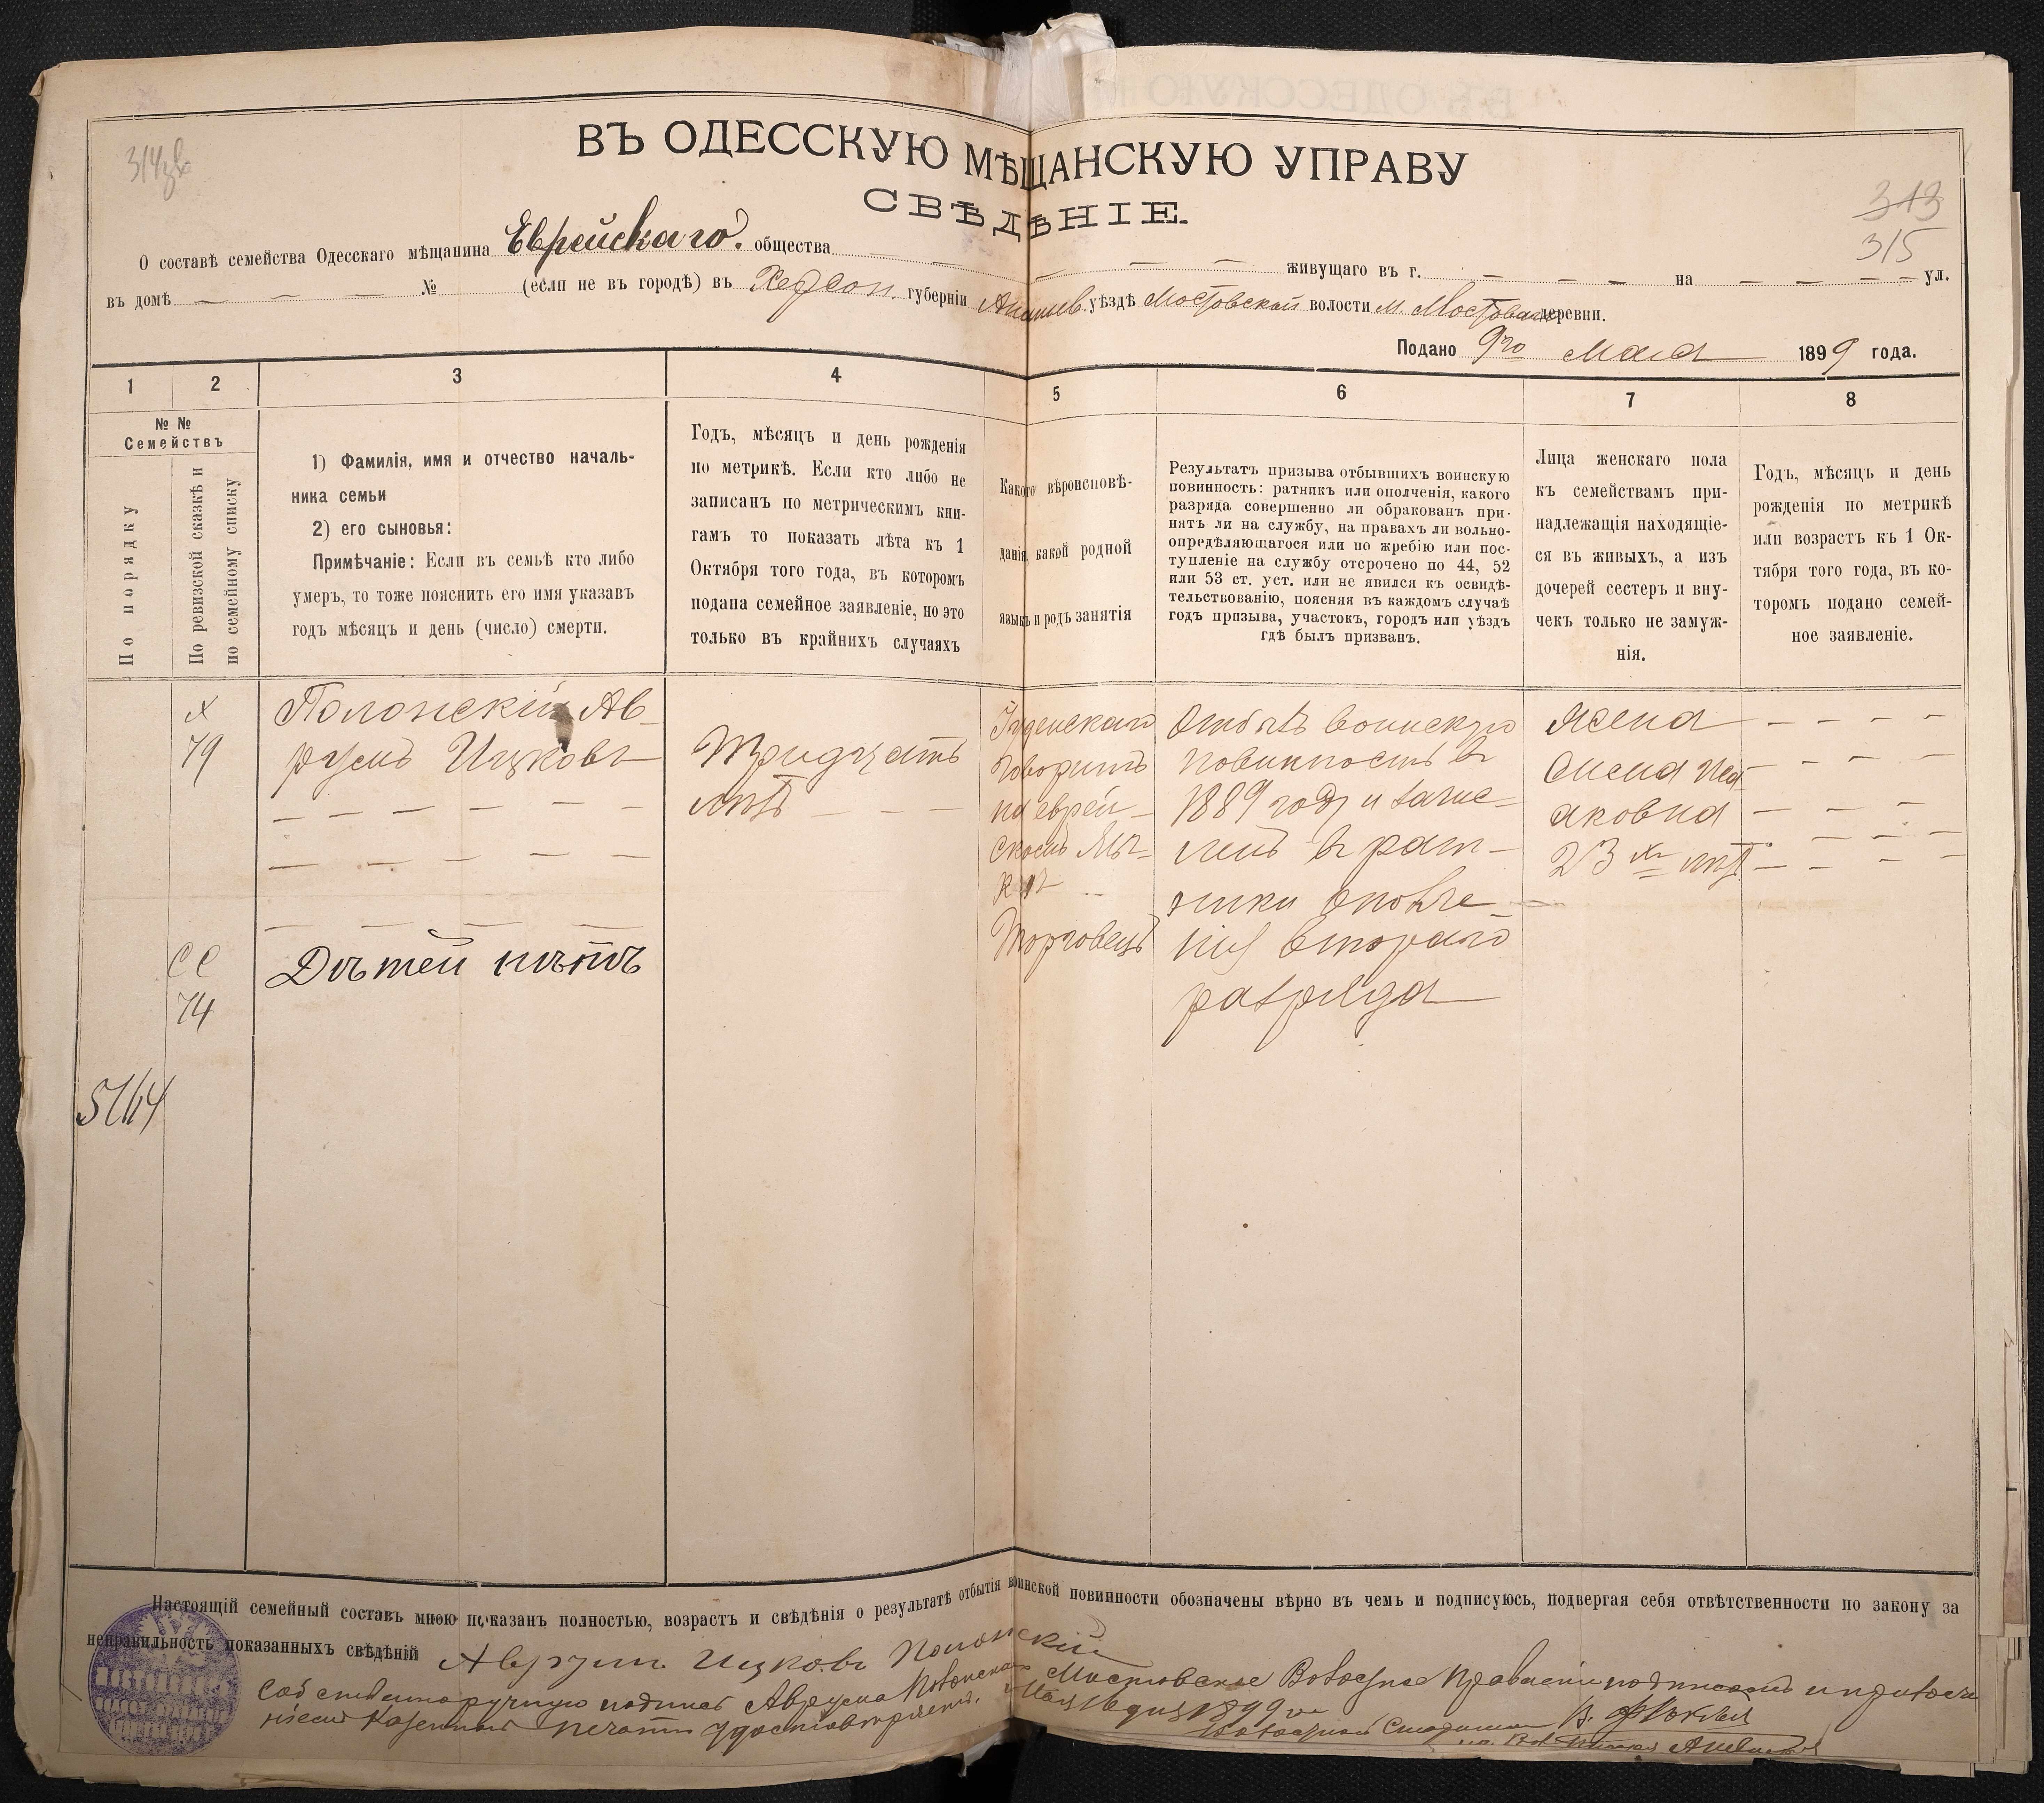 314
ВЪ ОДЕССКУЮ МѢЩАНСКУЮ УПРАВУ
СВѢДѢНІЕ.
313
315
О составѣ семейства Одесскаго мѣщанина Еврейскаго. общества — — — — — живущаго въ г. — — — на — — — ул.
въ домѣ — — — № (если не въ городѣ) въ Херсон. губерніи Ананьев. уѣздѣ Мостовской волости м. Мостовое деревни.
Подано 9го Мая 1899 года.
1 2 3 4 5 6 7 8
№ №
Семействъ
По порядку
По ревизской сказкѣ и
по семейному списку
1) Фамилія, имя и отчество началь-
ника семьи
2) его сыновья:
Примѣчаніе: Если въ семьѣ кто либо
умеръ, то тоже пояснить его имя указавъ
годъ мѣсяцъ и день (число) смерти.
Годъ, мѣсяцъ и день рожденія
по метрикѣ. Если кто либо не
записанъ по метрическимъ кни-
гамъ то показать лѣта къ 1
Октября того года, въ которомъ
подана семейное заявленіе, но это
только въ крайнихъ случаяхъ
Какого вѣроисповѣ-
данія, какой родной
языкъ и родъ занятія
Результатъ призыва отбывшихъ воинскую
повинность: ратникъ или ополченія, какого
разряда совершенно ли обракованъ при-
нятъ ли на службу, на правахъ ли вольно-
опредѣляющагося или по жребію или пос-
тупленіе на службу отсрочено по 44, 52
или 53 ст. уст. или не явился къ освидѣ-
тельствованію, поясняя въ каждомъ случаѣ
годъ призыва, участокъ, городъ или уѣздъ
гдѣ былъ призванъ.
Лица женскаго пола
къ семействамъ при-
надлежащія находящіе-
ся въ живыхъ, а изъ
дочерей сестеръ и вну-
чекъ только не замуж-
нія.
Годъ, мѣсяцъ и день
рожденія по метрикѣ
или возрастъ къ 1 Ок-
тября того года, въ ко-
торомъ подано семей-
ное заявленіе.
х
79
Полонскій Ав-
румъ Ицковъ
— — — — —
— — — — —
— — — —
сс
74
Дѣтей нѣтъ
5164
Тридцать
лѣтъ — — —
Іудейскаго
говоритъ
на еврей-
скомъ язы-
кѣ —
Торговецъ
Отбылъ воинскую
повинность в
1889 году и зачис-
ленъ в рат-
ники ополче-
нія второго
разряда
Жена — — — —
— — —
аковна — — —
23 хъ лѣтъ — — —
Настоящій семейный составъ мною показанъ полностью, возрастъ и свѣдѣнія о результатѣ отбытія воинской повинности обозначены вѣрно въ чемъ и подписуюсь, подвергая себя отвѣтственности по закону за
неправильность показанныхъ свѣдѣній Аврумъ Ицковъ Полонскій
Собственноручную подпись Аврума Полонскаго Мостовское Волостное Правленіе подписомъ и приложе-
ніемъ казенной печати удостовѣряетъ. Мая 16 дня 1899 го
Волостной Старшина